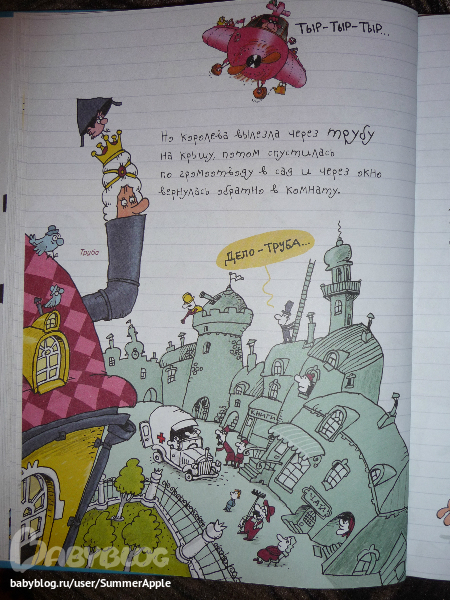 ТЫР-ТЫР-ТЫР...
Но королева вылезла через трубу
на крышу, потом спустилась
по громоотводу в сад и через окно
вернулась обратно в комнату.
Труба
ДЕЛО-ТРУБА...
КНИГИ
ЧАЙ
BABYBLOG
babyblog.ru/user/SummerApple